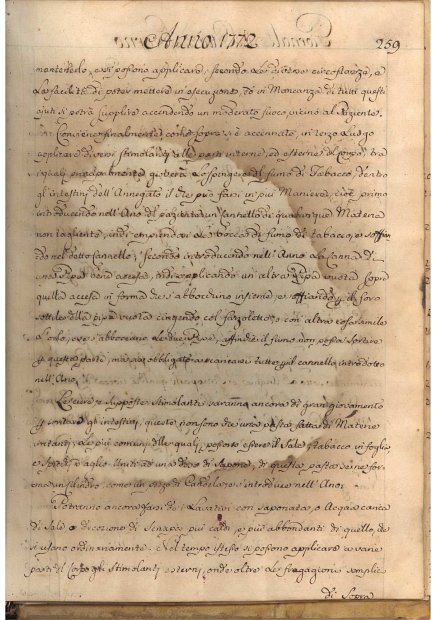 Anno 1772
259
mantenerlo, e si possono applicare, secondo le diverse circostanze, e
la facilità di poter mettere in esecuzione, Ed in Mancanza di tutti questi
ajuti si potrà supplire accendendo un moderato fuoco vicino al Paziente.
Conviene finalmente, come sopra si è accennato, in terzo Luogo
applicare diversi stimolanti alle parti interne, ed esterne del Corpo, tra
i quali principalmente gioverà lo spingere il fumo di Tabacco, dentro
gl'intestini dell'Annegato il che può farsi in più Maniere, cioè primo
introducendo nell'Ano del paziente un Cannello di qualunque Materia
non tagliente, indi empiendosi la bocca di fumo di tabacco, e soffian
do nel sotto Cannello; secondo introducendo nell'Ano la Canna di
una pipa bene accesa, indi applicando un'altra pipa vuota sopra
quella accesa in forma che s'abboccino insieme, e soffiando per
della pipa vuota cingendo col fazzoletto, o con altra cosa simile
luogo, ove s'abboccano le due Pipe, affinché il fumo non possa sortire
per questa parte, ma sia obbligato a scaricarsi tutto per il cannello introdotto
nell'Ano.
Le cure e supposte Stimolanti saranno ancora di gran giovamento
per irritare gl'intestini, queste non sono che una pasta fatta di Materie
irritanti, le più comuni delle quali possono essere il Sale, Tabacco in foglie
e d'aglio Uniti ad una dose di Sapone, di questa pasta se ne for
ma un cilindro, come un pezzo di Candela, e s'introduce nell'Ano.
Potranno ancora farsi de' Lavativi con saponata, o Acqua carica
di Sale, o decozione di Senapa più caldi, e più abbondanti di quello, che
si usano ordinariamente. Nel tempo istesso si possono applicare a varie
parti del Corpo gli stimolanti esterni, onde oltre le fregagioni semplici
di sopra